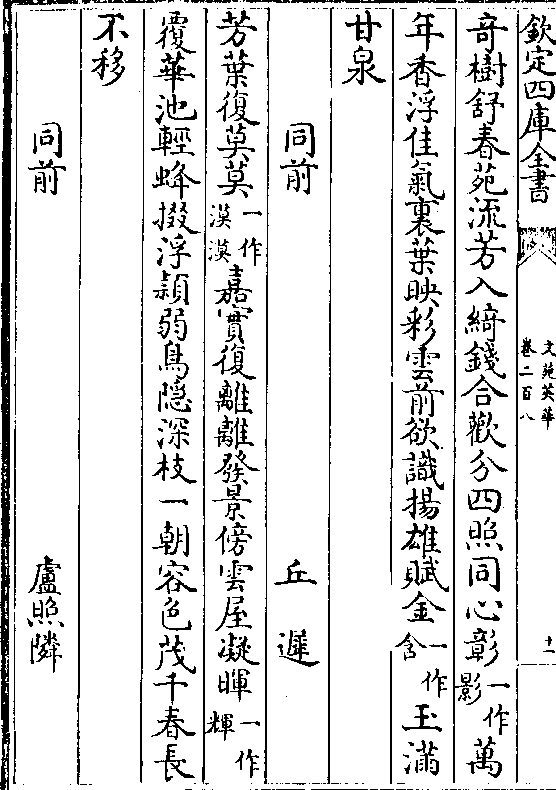 欽定四庫全書
文苑英華
卷二百八
十一
奇樹舒春苑流芳入綺錢合歡分四照同心彰一作影萬
年香浮佳氣裏葉映彩雲前欲識揚雄賦金一作含玉滿
甘泉
同前 丘遲
芳葉復莫莫一作漠漠嘉實復離離發景傍雲屋凝暉一作輝
覆華池輕蜂掇浮頴弱鳥隠深枝一朝容色茂千春長
不移
同前 盧照隣